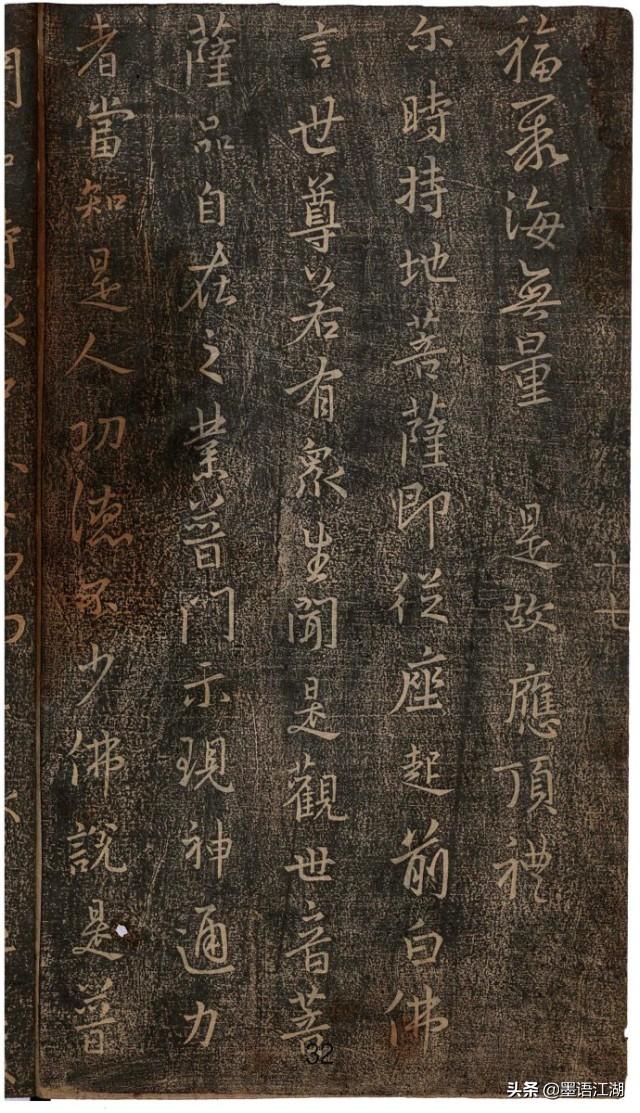 福聚海無量 是故應頂禮
尔時持地菩薩即從座起前白佛
言世尊若有眾生聞是觀世音菩
薩品自在之業普門示現神通力
者當知是人功德不少佛說是普
十七
32
头条 @墨语江湖